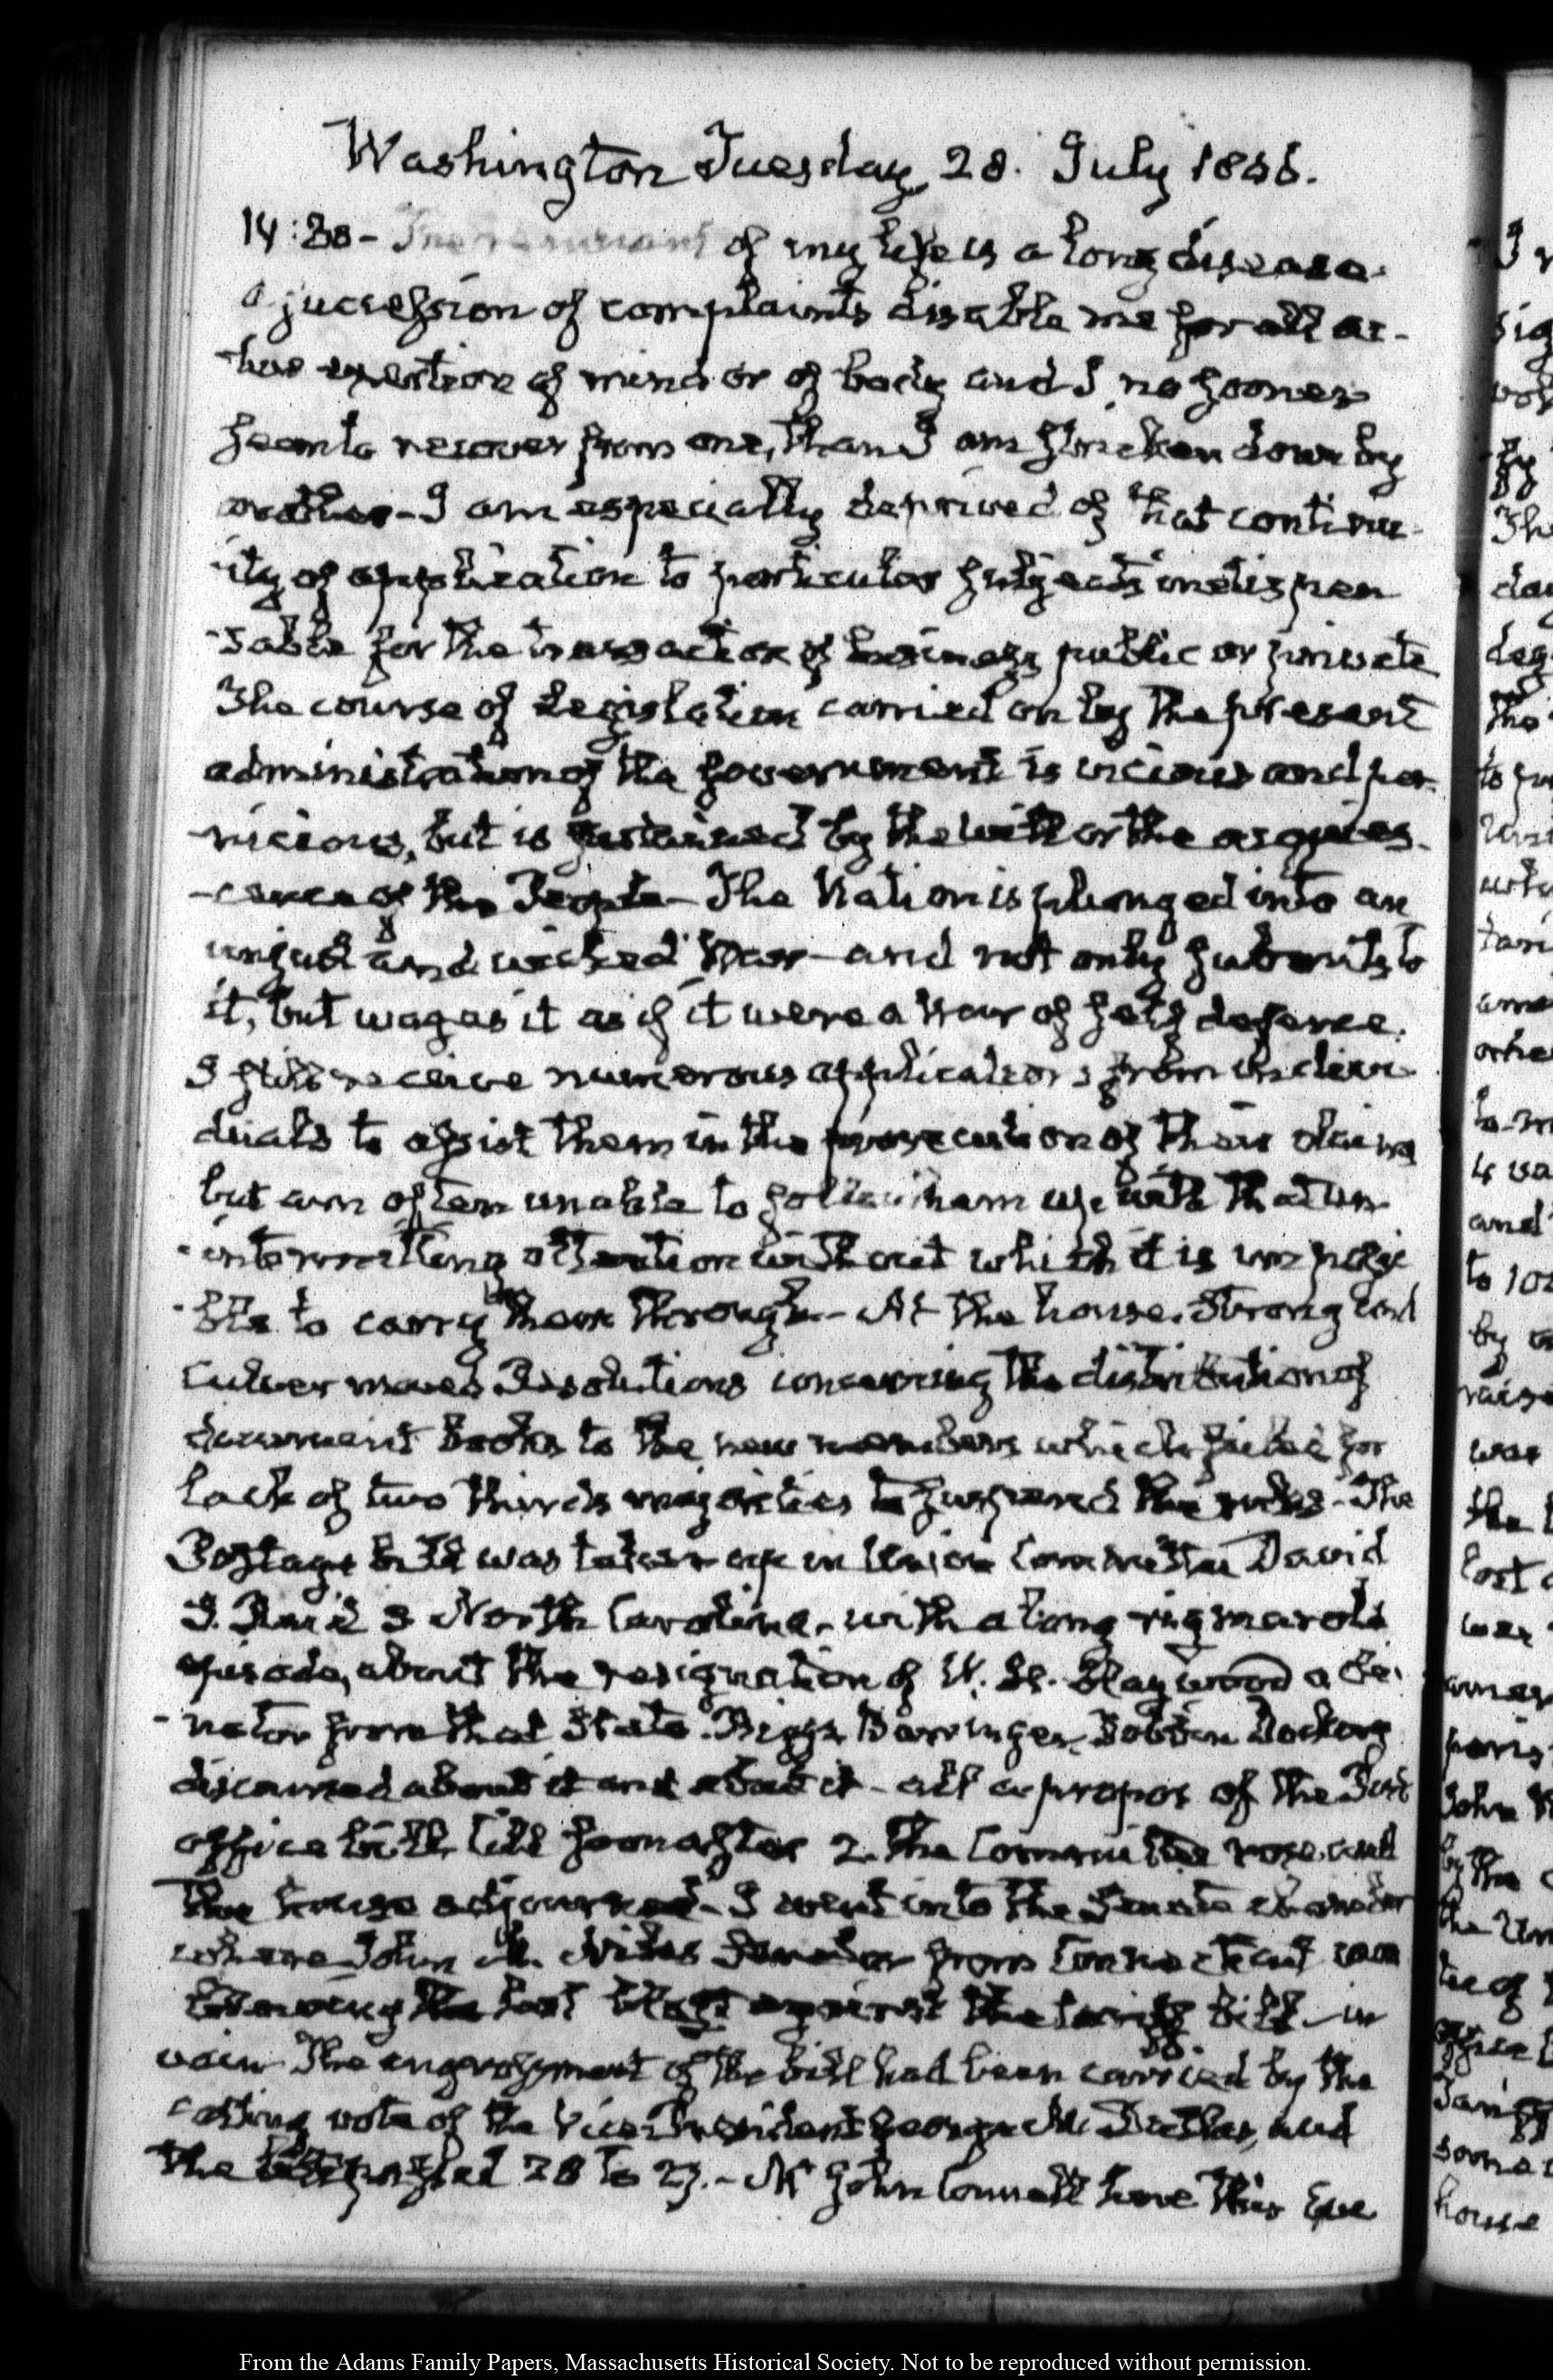 Washington Tuesday, 28. July 1846.
14:30 - of my life is a long disease.
a succession of complaints disable me for all ac-
tive exertion of mind or of body and I no sooner
seem to recover from one, than I am stricken down by
another - I am especially deprived of that continu-
-ity of application to particular subjects indispen
-sable for the transaction of business public or private
The course of Legislation carried on by the present
administration of the Government is vicious and per-
nicious, but is sustained by the will or the acquies-
-cence of the People - The Nation is plunged into an
unjust and wicked War - and not only submits to
it, but wages it as if it were a War of self defence.
I still receive numerous applications from indivi-
duals to assist them in the prosecution of their claims
but am often unable to follow them up with that un-
-intermitting attention without which it is impossi
-ble to carry them through - At the house. Strong and
Culver moved Resolutions concerning the distribution of
document books to the new members which failed for
lack of two thirds majorities to suspend the rules - The
Postage bill was taken up in Union Committee David
S. Reid 3 North Carolina, with a long rigmarole
episode, about the resignation of W. H. Haywood a Se-
-nator from that State. Biggs Barringer, Dobbin Dockery
discussed about it and about it - all apropos of the Post
office bill, till soon after 2. the Committee rose and
the house adjourned - I went into the Senate chamber
where John M. Niles Senator from Connecticut was
the last blast against the tariff bill - in
vain The engrossment of the bill had been carried by the
casting vote of the Vice President George M. Dallas, and
the bill passed 28 to 27. - Mr John Connell here this Eve